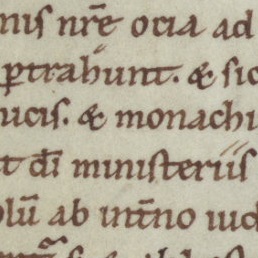 nis nr̄e ocia ad
ꝑtrahunt. & sic
ucis. & monachi
t dī ministeriis
lū ab int̄no iud